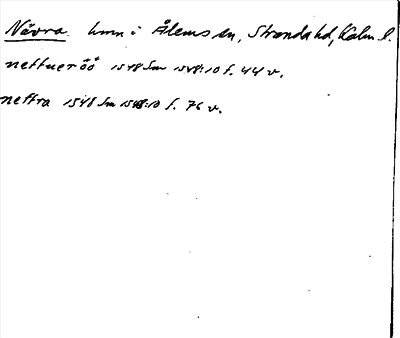 Nävra hmn i Ålems sn, Stranda hd, Kalm. l.
nettueröö 1548 Sm 1548:10 f. 44 v.
neffra 1548 Sm 1548:10 f. 76 v.